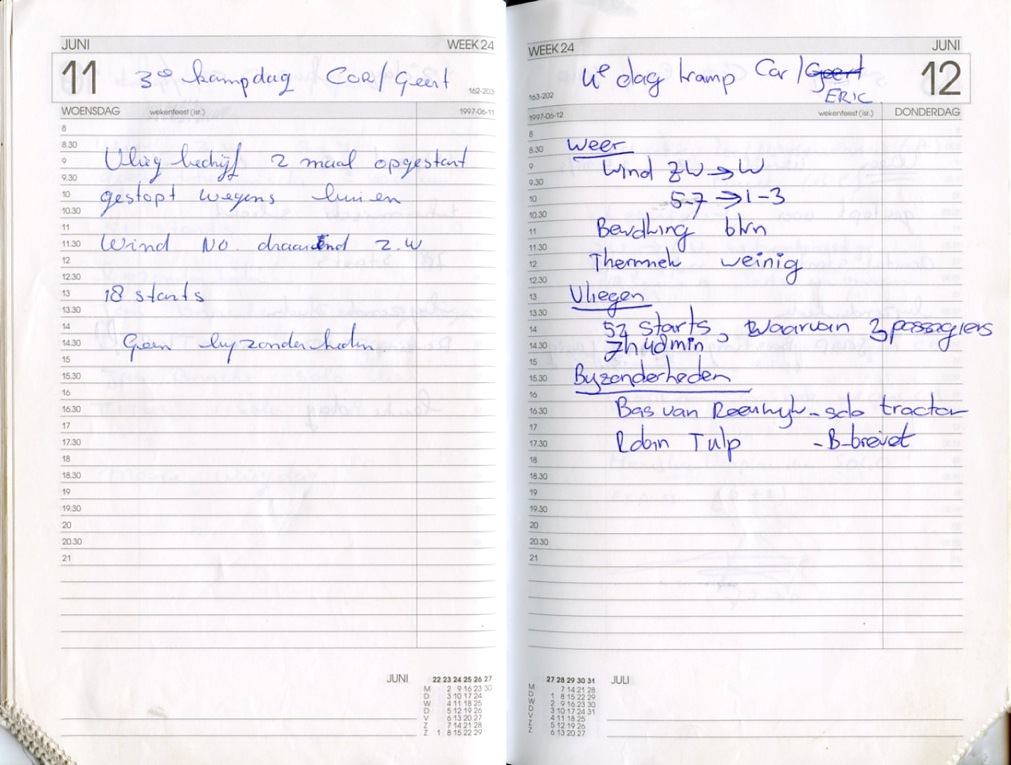 JUNI WEEK 24
11 3e kampdag COR/Geert
162-203
WOENSDAG wekenfeest (isr.) 1997-06-11
8
8.30
9 Vlieg bedrijf 2 maal opgestart
9.30
10 gestopt wegens buien
10.30
11
11.30 Wind NO. draaiend Z.W
12
12.30
13 18 starts
13.30
14
14.30 Geen byzonderheden
15
15.30
16
16.30
17
17.30
18
18.30
19
19.30
20
20.30
21
JUNI 22 23 24 25 26 27
M 2 9 16 23 30
D 3 10 17 24
W 4 11 18 25
D 5 12 19 26
V 6 13 20 27
Z 7 14 21 28
Z 1 8 15 22 29
WEEK 24 JUNI
4e dag kamp Cor/Geert 12
ERIC
163-202
1997-06-12 wekenfeest (isr.) DONDERDAG
8
8.30 Weer
9 Wind ZW → W
9.30
10 5-7 → 1-3
10.30
11 Bewolking bkn
11.30
12 Thermiek weinig
12.30
13 Vliegen
13.30
14 52 starts, waarvan 3 passagiers
14.30 7h 40min
15
15.30 Byzonderheden
16
16.30 Bas van - solo tractor
17
17.30 Robin Tulp - B-brevet
18
18.30
19
19.30
20
20.30
21
27 28 29 30 31 JULI
M 7 14 21 28
D 1 8 15 22 29
W 2 9 16 23 30
D 3 10 17 24 31
V 4 11 18 25
Z 5 12 19 26
Z 6 13 20 27